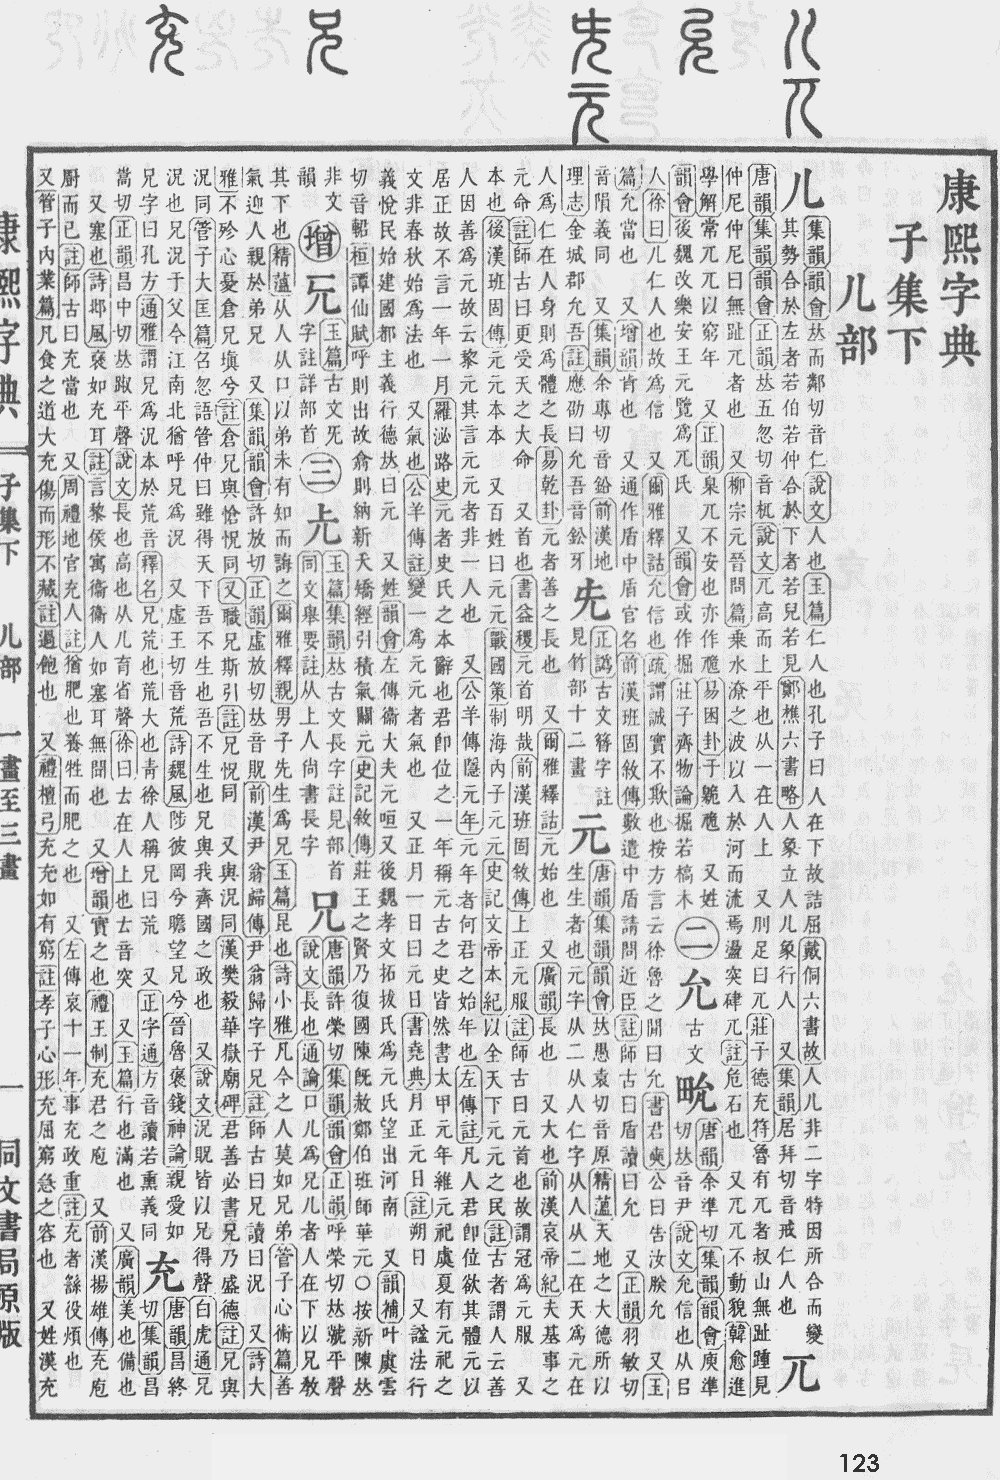 康熙字典
子集下
儿部
儿
集韻韻會𠀤而鄰切音仁說文人也玉篇仁人也孔子曰人在下故詰屈戴侗六書故人儿非二字特因所合而變
其勢合於左者若伯若仲合於下者若兒若見鄭樵六書略人象立人儿象行人 又集韻居拜切音戒仁人也
兀
唐韻集韻韻會正韻𠀤五忽切音杌說文兀高而上平也从一在人上 又刖足曰兀莊子德充符魯有兀者叔山無趾踵見
仲尼仲尼曰無趾兀者也 又柳宗元晉問篇乗水潦之波以入於河而流焉盪突硉兀註危石也 又兀兀不動貌韓愈進
學解常兀兀以窮年 又正韻臬兀不安也亦作卼易困卦于臲卼 又姓
韻會後魏改樂安王元覽爲兀氏 又韻會或作掘莊子齊物論掘若槁木
二
允
古文
㽙
唐韻余準切集韻韻會庾準
切𠀤音尹說文允信也从㠯
人徐曰儿仁人也故爲信 又爾雅釋詁允信也疏謂誠實不欺也按方言云徐魯之閒曰允書君奭公曰告汝朕允 又玉
篇允當也 又增韻肯也 又通作盾中盾官名前漢班固敘傳數遣中盾請問近臣註師古曰盾讀曰允 又正韻羽敏切
音隕義同 又集韻余專切音鉛前漢地
理志金城郡允吾註應劭曰允吾音鈆牙
兂
正譌古文簪字註
見竹部十二畫
元
唐韻集韻韻會𠀤愚袁切音原精薀天地之大德所以
生生者也元字从二从人仁字从人从二在天爲元在
人爲仁在人身則爲體之長易乾卦元者善之長也 又爾雅釋詁元始也 又廣韻長也 又大也前漢哀帝紀夫基事之
元命註師古曰更受天之大命 又首也書益稷元首明哉前漢班固敘傳上正元服註師古曰元首也故謂冠爲元服 又
本也後漢班固傳元元本本 又百姓曰元元戰國策制海內子元元史記文帝本紀以全天下元元之民註古者謂人云善
人因善爲元故云黎元其言元元者非一人也 又公羊傳隱元年元年者何君之始年也左傳註凡人君卽位欲其體元以
居正故不言一年一月羅泌路史元者史氏之本辭也君卽位之一年稱元古之史皆然書太甲元年維元祀虞夏有元祀之
文非春秋始爲法也 又氣也公羊傳註變一爲元元者氣也 又正月一日曰元日書堯典月正元日註朔日 又諡法行
義悅民始建國都主義行德𠀤曰元 又姓韻會左傳衞大夫元咺又後魏孝文拓拔氏爲元氏望出河南 又韻補叶虞雲
切音輑桓譚仙賦呼則出故翕則納新夭矯經引積氣關元史記敘傳莊王之賢乃復國陳旣赦鄭伯班師華元○按新陳𠀤
非文
韻
增
玉篇古文
字註詳部首
三
玉篇集韻𠀤古文長字註見部首
同文舉要註从上人尙書長字
兄
唐韻許榮切集韻韻會正韻呼榮切𠀤虩平聲
說文長也通論口儿爲兄儿者人在下以兄敎
其下也精薀从人从口以弟未有知而誨之爾雅釋親男子先生爲兄玉篇昆也詩小雅凡今之人莫如兄弟管子心術篇善
氣迎人親於弟兄 又集韻韻會許放切正韻虛放切𠀤音貺前漢尹翁歸傳尹翁歸字子兄註師古曰兄讀曰況 又詩大
雅不殄心憂倉兄塡兮註倉兄與愴怳同又職兄斯引註兄怳同 又與況同漢樊毅華嶽廟碑君善必書兄乃盛德註兄與
況同管子大匡篇召忽語管仲曰雖得天下吾不生也兄與我齊國之政也 又說文況貺皆以兄得聲白虎通兄
況也兄況于父今江南北猶呼兄爲況 又虛王切音荒詩魏風陟彼岡兮瞻望兄兮晉魯褒錢神論親愛如
兄字曰孔方通雅謂兄爲況本於荒音釋名兄荒也荒大也靑徐人稱兄曰荒 又正字通方音讀若熏義同
充
唐韻昌終
切集韻昌
嵩切正韻昌中切𠀤踧平聲說文長也高也从儿育省聲徐曰𠫓在人上也𠫓音突 又玉篇行也滿也 又廣韻美也備也
又塞也詩邶風褎如充耳註言黎侯寓衞衞人如塞耳無聞也 又增韻實之也禮王制充君之庖 又前漢揚雄傳充庖
廚而已註師古曰充當也 又周禮地官充人註猶肥也養牲而肥之也 又左傳哀十一年事充政重註充者繇役煩也
又管子內業篇凡食之道大充傷而形不藏註過飽也 又禮檀弓充充如有窮註孝子心形充屈窮急之容也 又姓漢充
康熙字典
子集下
儿部
一畫至三畫
一
同文書局原版
123